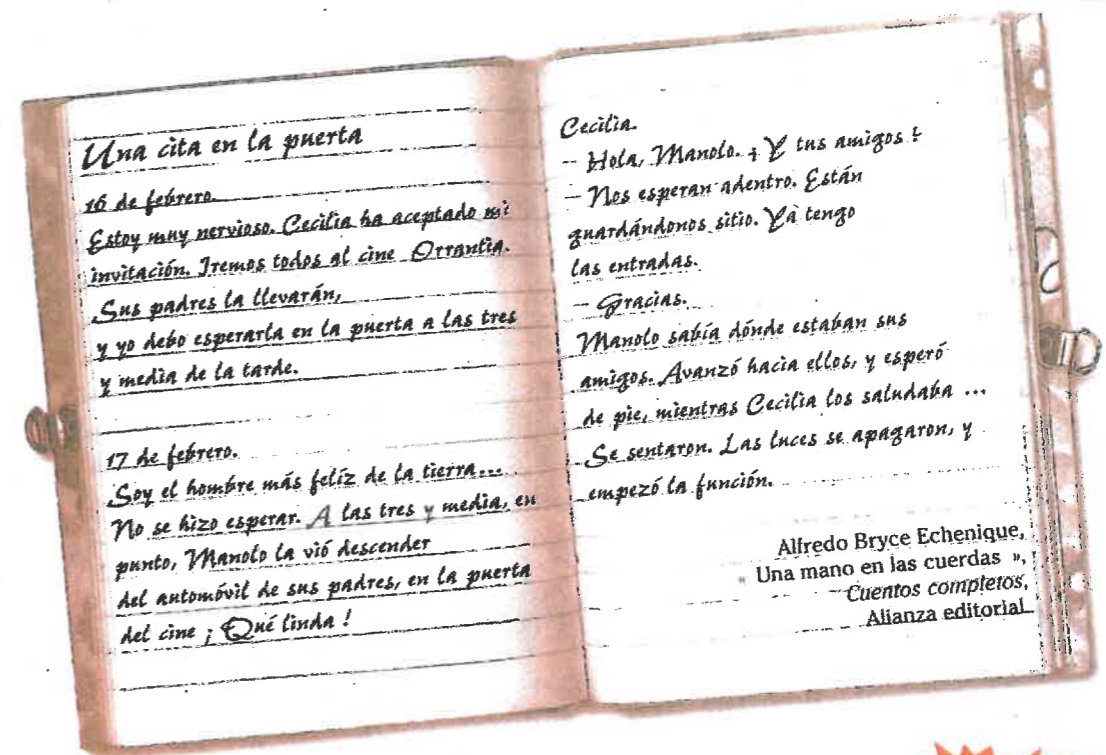 Una cita en la puerta
16 de febrero.
Estoy muy nervioso. Cecilia ha aceptado mi
invitación. Iremos todos al cine Orrantia.
Sus padres la llevarán,
y yo debo esperarla en la puerta a las tres
y media de la tarde.
17 de febrero.
Soy el hombre más felíz de la tierra...
No se hizo esperar. A las tres y media, en
punto, Manolo la vió descender
del automóvil de sus padres, en la puerta
del cine ¡ Qué linda !
Cecilia.
– Hola, Manolo. ¿ Y tus amigos ?
– Nos esperan adentro. Están
guardándonos sitio. Yà tengo
las entradas.
– Gracias.
Manolo sabía dónde estaban sus
amigos. Avanzó hacia ellos, y esperó
de pie, mientras Cecilia los saludaba ...
Se sentaron. Las luces se apagaron, y
empezó la función.
Alfredo Bryce Echenique,
« Una mano en las cuerdas »,
Cuentos completos,
Alianza editorial.